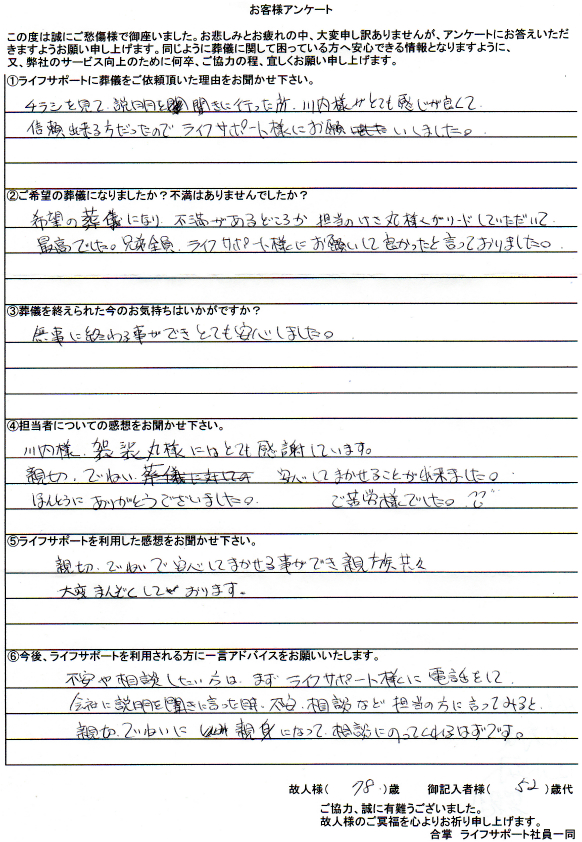 お客様アンケート
この度は誠にご愁傷様で御座いました。お悲しみとお疲れの中、大変申し訳ありませんが、アンケートにお答えいただ
きますようお願い申し上げます。同じように葬儀に関して困っている方へ安心できる情報となりますように、
又、弊社のサービス向上のために何卒、ご協力の程、宜しくお願い申し上げます。
①ライフサポートに葬儀をご依頼頂いた理由をお聞かせ下さい。
チラシを見て、説明を聞きに行った所、川内様がとても感じが良くて
信頼出来る方だったのでライフサポート様にお願いしました。
②ご希望の葬儀になりましたか？不満はありませんでしたか？
希望の葬儀になり 不満があるどころか 担当のけさ丸様がリードしていただいて
最高でした。兄弟全員、ライフサポート様にお願いして良かったと言っておりました。
③葬儀を終えられた今のお気持ちはいかがですか？
無事に終わる事ができとても安心しました。
④担当者についての感想をお聞かせ下さい。
川内様、袈裟丸様にはとても感謝しています。
親切、ていねい 安心してまかせることが出来ました。
ほんとうにありがとうございました。 ご苦労様でした。
⑤ライフサポートを利用した感想をお聞かせ下さい。
親切、ていねいで安心してまかせる事ができ親族共々
大変まんぞくしております。
⑥今後、ライフサポートを利用される方に一言アドバイスをお願いいたします。
不安や相談したい方は、まずライフサポート様に電話をして
会社に説明を聞きに言った時、不安、相談など担当の方に言ってみると、
親切、ていねいに 親身になって相談にのってくれるはずです。
故人様( 78 )歳 御記入者様( 52 )歳代
ご協力、誠に有難うございました。
故人様のご冥福を心よりお祈り申し上げます。
合掌 ライフサポート社員一同